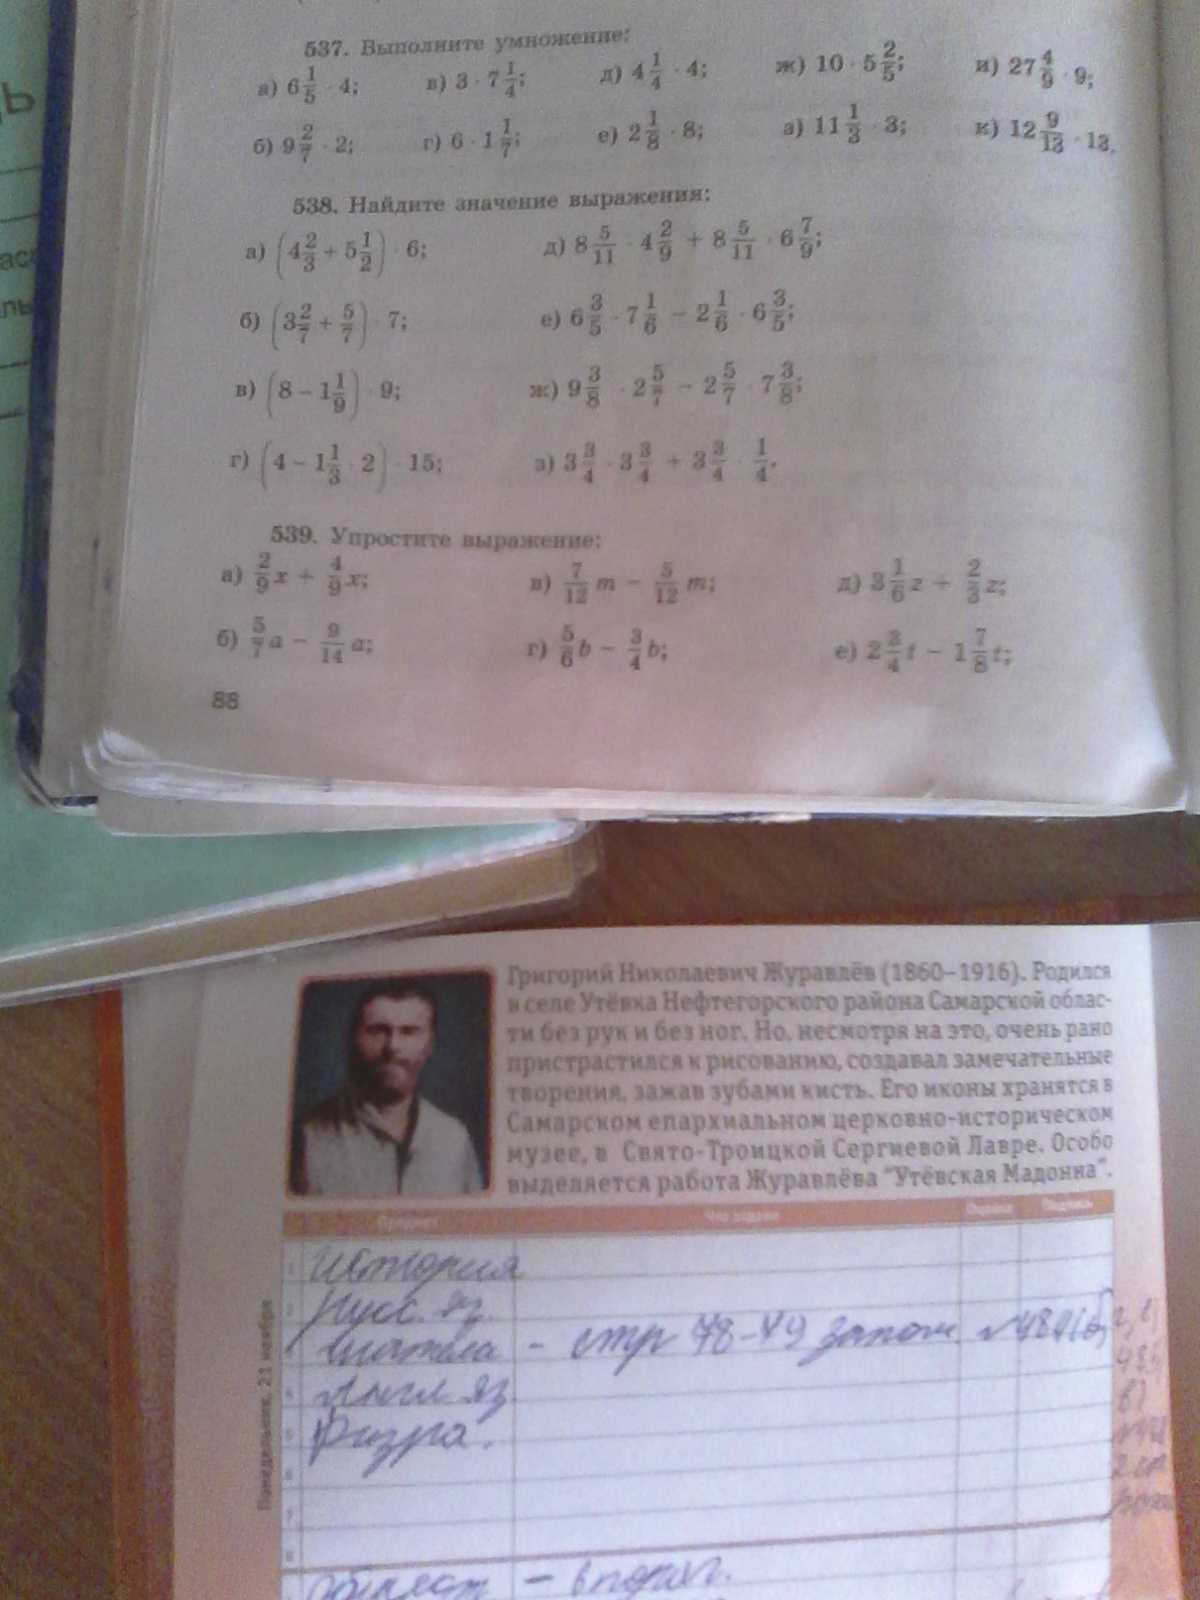 537. Выполните умножение:
а) 6 1/5 · 4; в) 3 · 7 1/4; д) 4 1/4 · 4; ж) 10 · 5 2/5; и) 27 4/9 · 9;
б) 9 2/7 · 2; г) 6 · 1 1/7; е) 2 1/8 · 8; з) 11 1/3 · 3; к) 12 9/13 · 13.
538. Найдите значение выражения:
а) (4 2/3 + 5 1/2) · 6; д) 8 5/11 · 4 2/9 + 8 5/11 · 6 7/9;
б) (3 2/7 + 5/7) · 7; е) 6 3/5 · 7 1/6 − 2 1/6 · 6 3/5;
в) (8 − 1 1/9) · 9; ж) 9 3/8 · 2 5/7 − 2 5/7 · 7 3/8;
г) (4 − 1 1/3 · 2) · 15; з) 3 3/4 · 3 3/4 + 3 3/4 · 1/4.
539. Упростите выражение:
а) 2/9 x + 4/9 x; в) 7/12 m − 5/12 m; д) 3 1/6 z + 2/3 z;
б) 5/7 a − 9/14 a; г) 5/6 b − 3/4 b; е) 2 3/4 t − 1 7/8 t;
88
Григорий Николаевич Журавлёв (1860–1916). Родился
в селе Утёвка Нефтегорского района Самарской облас-
ти без рук и без ног. Но, несмотря на это, очень рано
пристрастился к рисованию, создавал замечательные
творения, зажав зубами кисть. Его иконы хранятся в
Самарском епархиальном церковно-историческом
музее, в Свято-Троицкой Сергиевой Лавре. Особо
выделяется работа Журавлёва "Утёвская Мадонна".
Предмет Что задано Оценка Подпись
Понедельник, 21 ноября
История
Русс. яз.
- стр 78-79
Англ. яз
Физра.